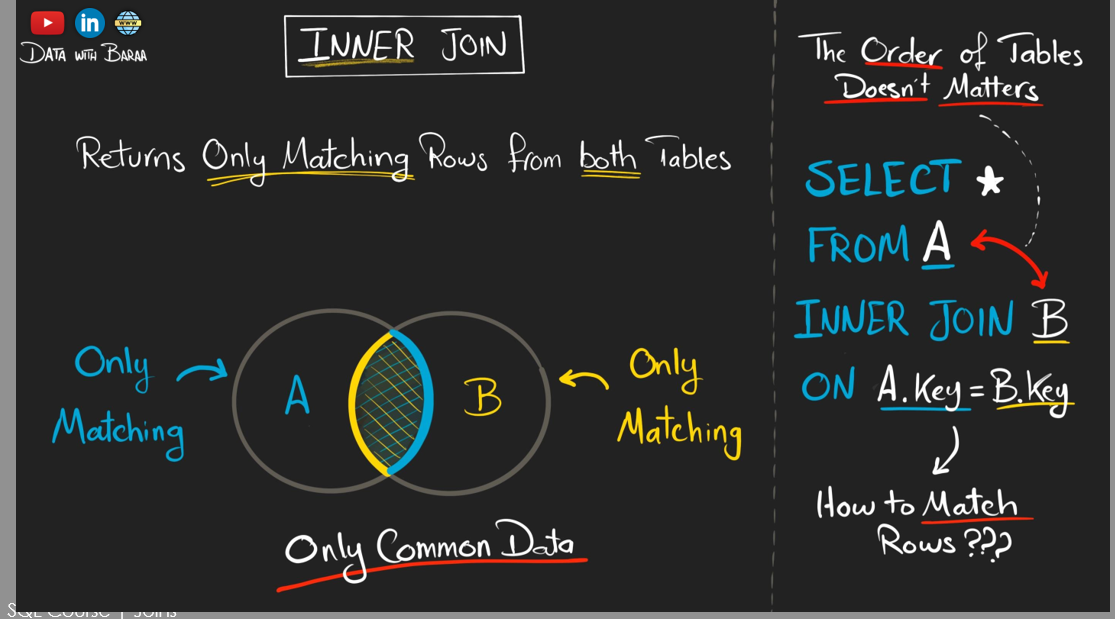 www
DATA WITH BARAA
INNER JOIN
Returns Only Matching Rows from both Tables
Only
Matching
A
B
Only
Matching
Only Common Data
The Order of Tables
Doesn't Matters
SELECT *
FROM A
INNER JOIN B
ON A.Key = B.Key
How to Match
Rows ???
in
SQL Course | Joins